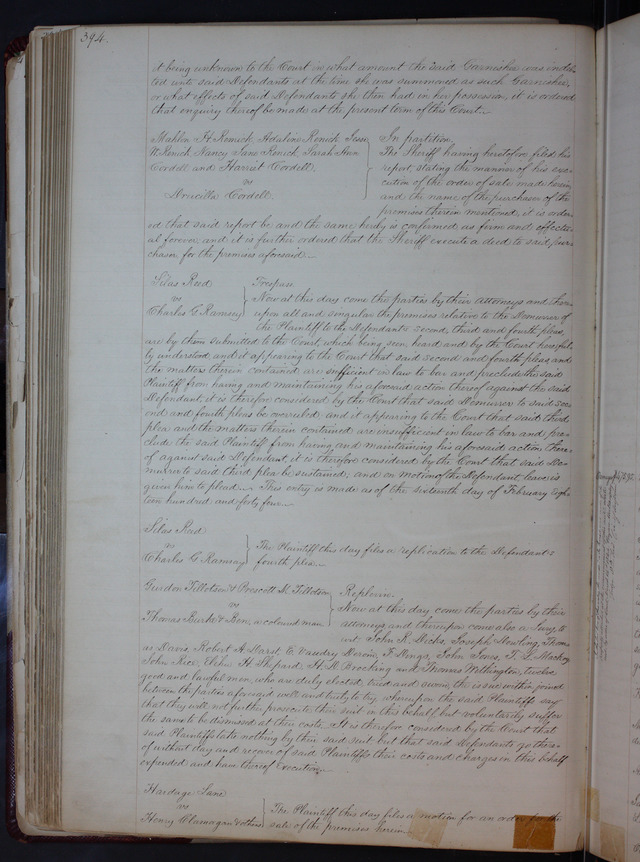 394.
it being unknown to the Court in what amount the said Garnishee was indeb-
ted unto said Defendants at the time she was summoned as such Garnishee,
or what effects of said Defendants she then had in her possession, it is ordered
that enquiry thereof be made at the present term of this Court.
Mahlon H. Renick, Adaline Renick, Jesse
H. Renick, Nancy Jane Renick, Sarah Ann
Cordell and Harriet Cordell,
vs
Drucilla Cordell.
In partition.
The Sheriff having heretofore filed his
report, stating the manner of his exe-
cution of the order of sale made herein
and the name of the purchaser of the
premises therein mentioned, it is order-
ed that said report be and the same hereby is confirmed as firm and effectu-
al forever and it is further ordered that the Sheriff execute a deed to said pur-
chaser for the premises aforesaid.
Silas Reed
vs
Charles G. Ramsey
Trespass.
Now at this day come the parties by their attorneys and there-
upon all and singular the premises relative to the Demurrer of
the Plaintiff to the Defendants second, third and fourth pleas,
are by them submitted to the Court, which being seen, heard and by the Court here full-
ly understood and it appearing to the Court that said second and fourth pleas and
the matters therein contained are sufficient in law to bar and preclude the said
Plaintiff from having and maintaining his aforesaid action thereof against the said
Defendant, it is therefore considered by the Court that said Demurrer to said sec-
ond and fourth pleas be overruled and it appearing to the Court that said third
plea and the matters therein contained are insufficient in law to bar and pre-
clude the said Plaintiff from having and maintaining his aforesaid action there-
of against said Defendant, it is therefore considered by the Court that said De-
murrer to said third plea be sustained, and on motion of the Defendant leave is
given him to plead. This entry is made as of the sixteenth day of February Eigh-
teen hundred and forty four.
Silas Reed
vs
Charles G. Ramsey
The Plaintiff this day files a replication to the Defendants
fourth plea.
Gurdon Tillotson & Prescott M. Tillotson
vs
Thomas Burke & Ben, a colored man
Replevin.
Now at this day come the parties by their
attorneys, and thereupon come also a Jury to
wit John R. Meeks, Joseph Dowling, Thom-
as Davis, Robert A. Darst, E. Vaudry
John Rice, Elihu H. Shepard, H. M. Brocking and Thomas Wellington, twelve
good and lawful men, who are duly elected, tried and sworn, the issue within joined
between the parties aforesaid well and truly to try, whereupon the said Plaintiffs say
that they will not further prosecute their suit in this behalf but voluntarily suffer
the same to be dismissed at their costs. It is therefore considered by the Court that
said Plaintiffs take nothing by their said suit but that said Defendants go there-
of without day and recover of said Plaintiffs their costs and charges in this behalf
expended and have thereof Execution.
Hardage Lane
vs
Henry Clamagan & others
The Plaintiff this day files a motion for an order for the
sale of the premises herein.